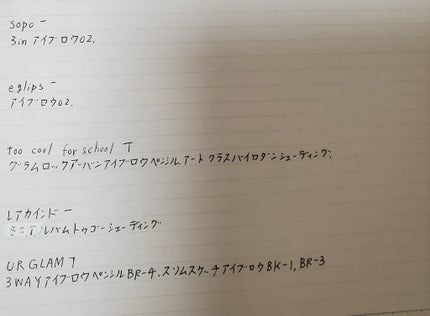 sopo ー
3in アイブロウ02.
eglips ー
アイブロウ02.
too cool for school T
グラムロックアーバンアイブロウペンシル, アートクラスバイロダンシェーディング,
レアカインド ー
ミニアルバムトゥゴーシェーディング
UR GLAM T
3WAYアイブロウペンシルBR-4. スリムスケッチアイブロウBK-1, BR-3